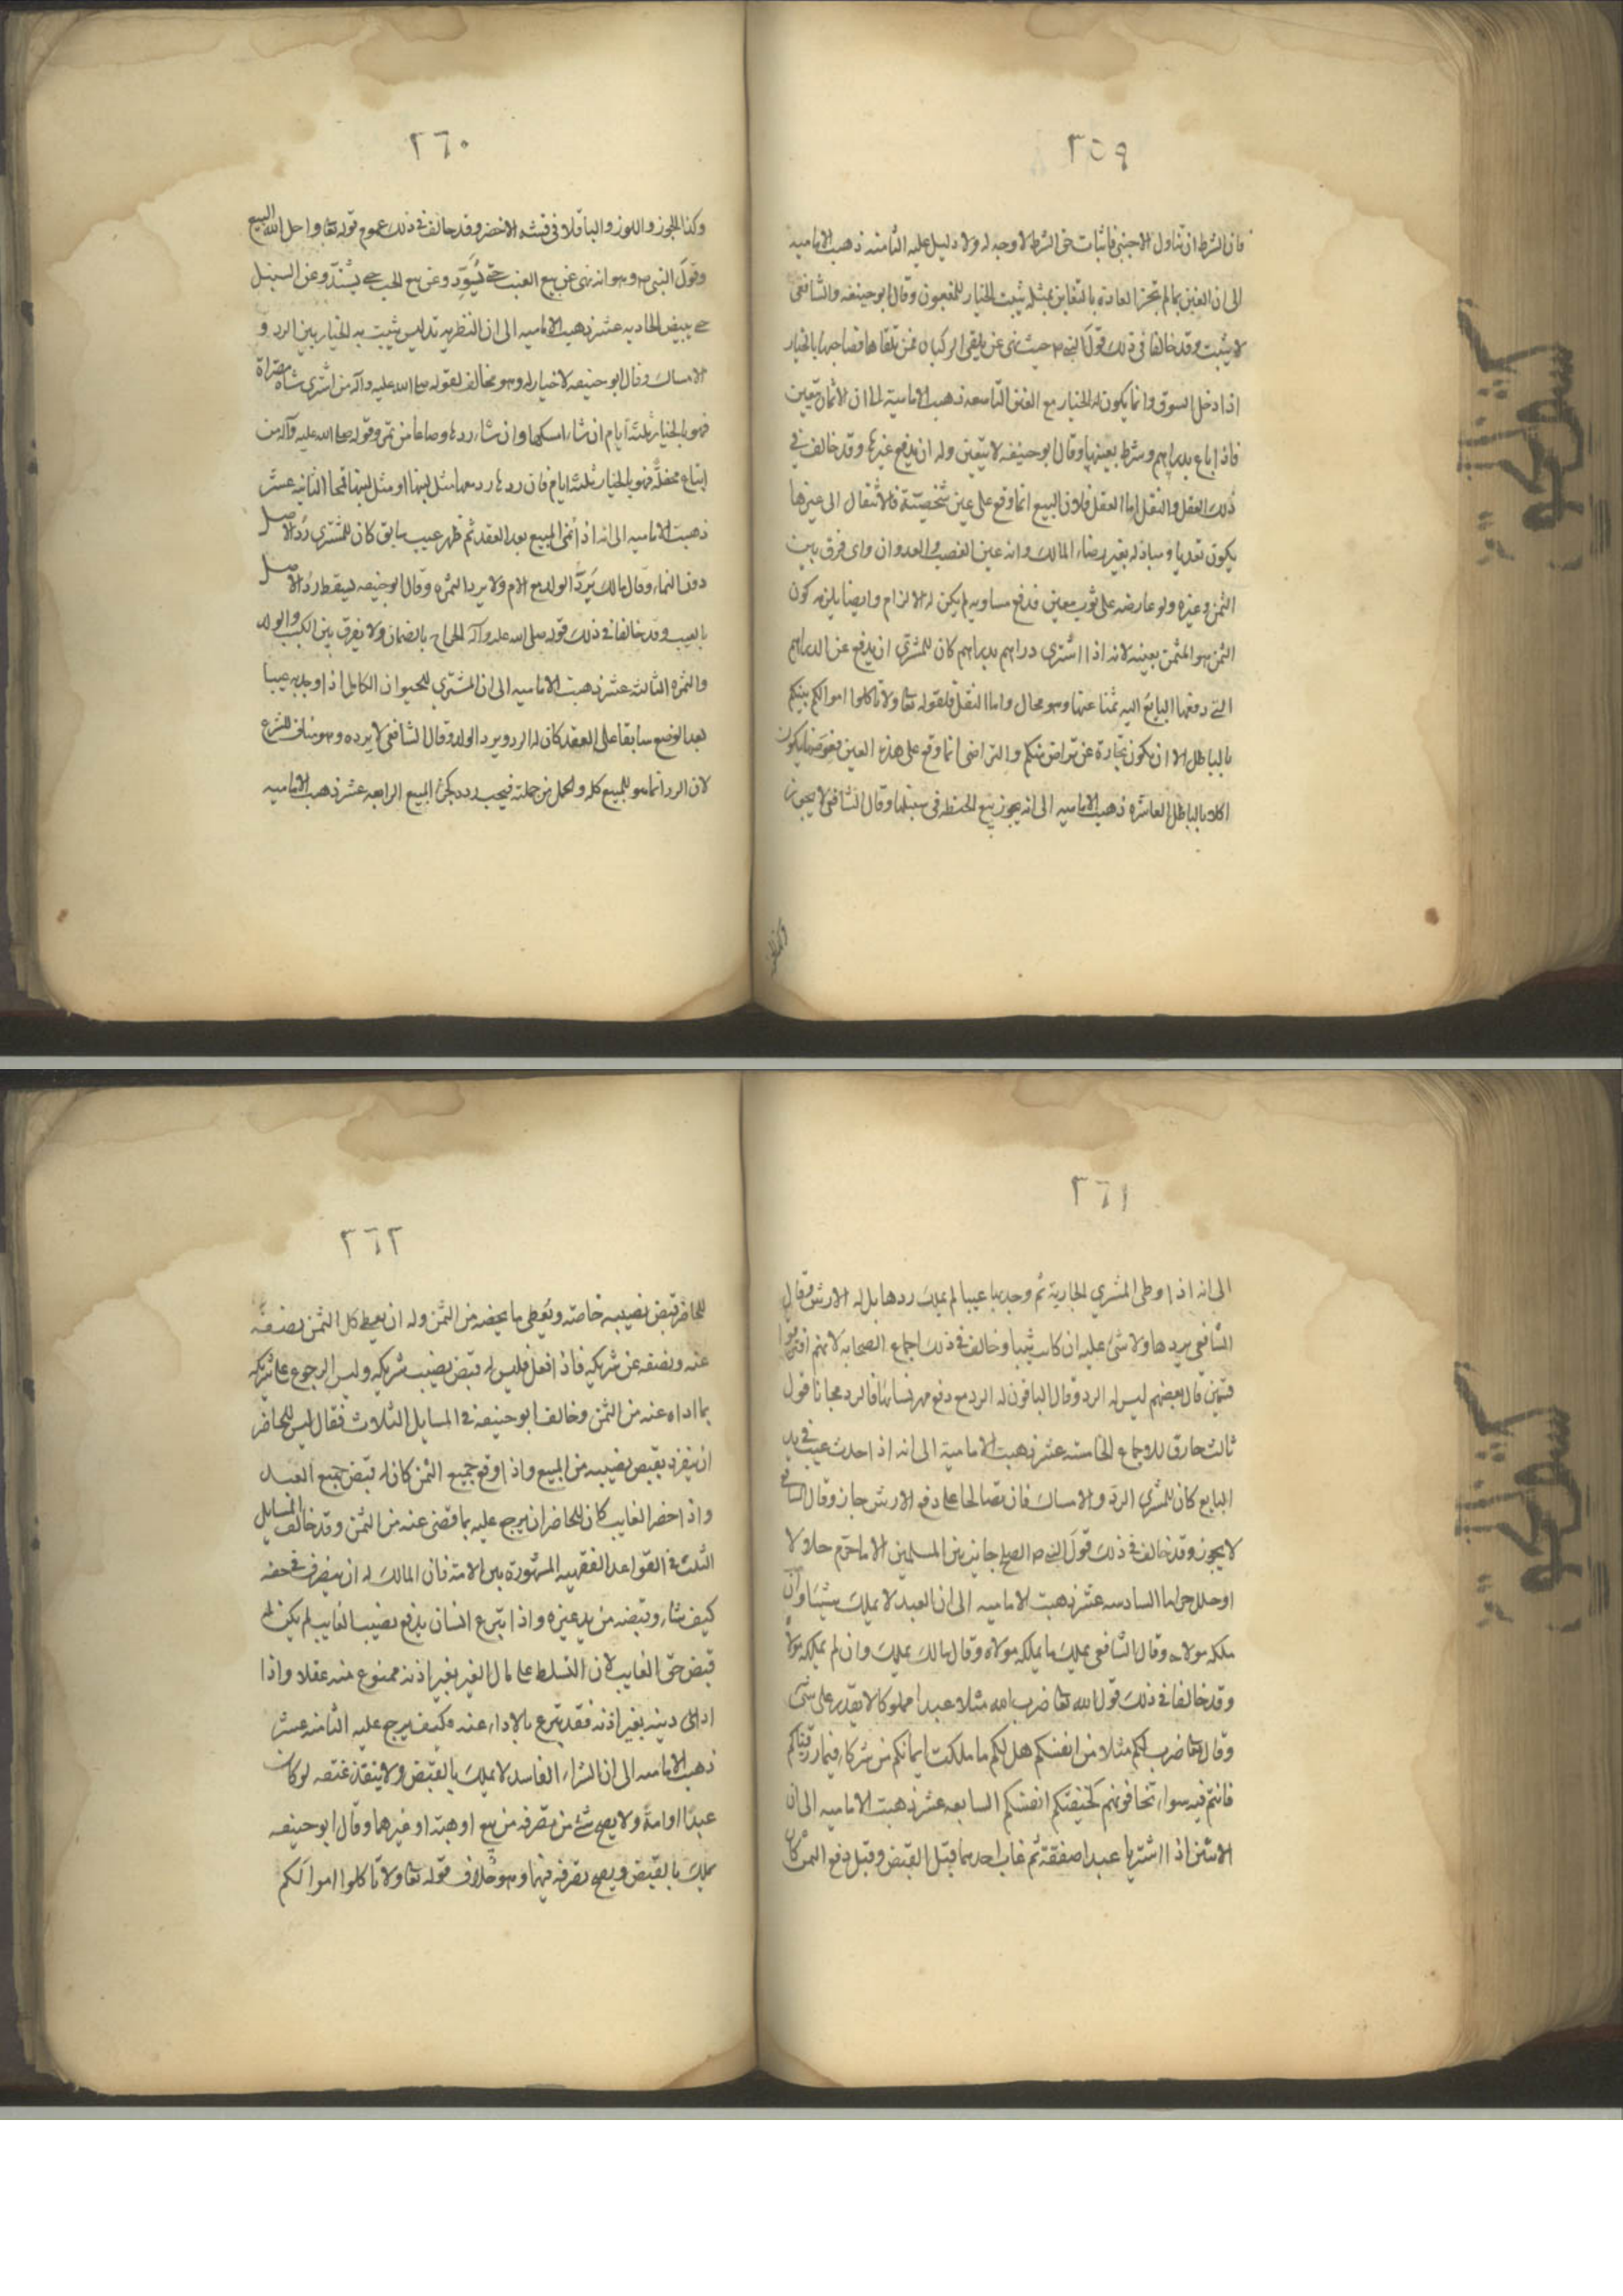 ٣٥٩
فان الشرط ان تناول الاجنبي فاثبات حق الشرط لا وجه له ولا دليل عليه الثامنه ذهبت الاماميه
الى ان الغبن بما لم تجز العادة بالتغابن بمثله يثبت الخيار للمغبون وقال ابو حنيفه والشافعي
لا يثبت وقد خالفا في ذلك قول النبي ص حيث نهى عن تلقي الركبان فمن تلقاها فصاحبها بالخيار
اذا دخل السوق وانما يكون له الخيار مع الغبن التاسعه ذهبت الامامية الى ان الاثمان تتعين
فاذا باع بدراهم وشرط بعينها وقال ابو حنيفه لا يتعين وله ان يدفع غيرها وقد خالف في
ذلك العقل والنقل اما العقل فلان البيع انما وقع على عين شخصيّة فالانتقال الى غيرها
يكون تعديا ومبادله بغير رضاء المالك وانه عين الغصب والعدوان واي فرق بين
الثمن وغيره ولو عارضه على ثوب معين فدفع مساويه لم يكن له الالزام وايضا يلزم كون
الثمن هو المثمن بعينه لانه اذا اشترى دراهم بدراهم كان للمشتري ان يدفع عن الدراهم
التي دفعها البايع اليه ثمنا عنها وهو محال واما النقل فلقوله تعا ولا تاكلوا اموالكم بينكم
بالباطل الا ان يكون تجارة عن تراض منكم والتراضي انما وقع على هذه العين فعوضها يكون
اكلا بالباطل العاشره ذهبت الاماميه الى انه يجوز بيع الحنطه في سنبلها وقال الشافعي لا يجوز
وكذا الجوز
٣٦٠
وكذا الجوز واللوز والباقلا في قشره الاخضر وقد خالف في ذلك عموم قوله تعا واحل الله البيع
وقول النبي ص وهو انه نهى عن بيع العنب حتى يسود وعن بيع الحب حتى يشتد وعن السنبل
حتى يبيض الحاديه عشر ذهبت الاماميه الى ان التصريه تدليس يثبت به الخيار بين الرد و
الامساك وقال ابو حنيفه لا خيار له وهو مخالف لقوله صلى الله عليه وآله من اشترى شاه مصراة
فهو بالخيار ثلثة ايام ان شاء امسكها وان شاء ردها وصاعا من تمر وقوله صلى الله عليه وآله من
ابتاع محفلة فهو بالخيار ثلثة ايام فان ردها رد معها مثل لبنها او مثل لبنها قمحا الثانيه عشر
ذهبت الاماميه الى انه اذا نمى المبيع بعد العقد ثم ظهر عيب سابق كان للمشتري رد الاصل
دون النماء وقال مالك يرد الولد مع الام ولا يرد الثمره وقال ابو حنيفه يسقط رد الاصل
بالعيب وقد خالفا في ذلك قوله صلى الله عليه وآله الخراج بالضمان ولا يفرق بين الكسب والولد
والثمره الثالثه عشر ذهبت الاماميه الى ان المشتري للحيوان الحامل اذا وجد به عيبا
بعد الوضع سابقا على العقد كان له الرد ويرد الولد وقال الشافعي لا يرده وهو مناف للشرع
لان الرد انما هو للمبيع كله والحمل من جملته فيجب رده كجزء المبيع الرابعه عشر ذهبت الاماميه
٣٦١
الى انه اذا وطى المشتري الجارية ثم وجد بها عيبا لم يملك ردها بل له الارش وقال
الشافعي يردها ولا شئ عليه ان كانت ثيبا وخالف في ذلك اجماع الصحابه لانهم افترقوا
قسمين قال بعضهم ليس له الرد وقال الباقون له الرد مع دفع مهر نسائها فالرد مجانا قول
ثالث خارق للاجماع الخامسه عشر ذهبت الامامية الى انه اذا احدث عيب في يد
البايع كان للمشتري الرد والامساك فان تصالحا على دفع الارش جاز وقال الشافعي
لا يجوز وقد خالف في ذلك قول النبي ص الصلح جايز بين المسلمين الا ما حرم حلالا
او حلل حراما السادسه عشر ذهبت الاماميه الى ان العبد لا يملك شيئا وان
ملكه مولاه وقال الشافعي يملك ما يملكه مولاه وقال مالك يملك وان لم يملكه مولاه
وقد خالفا في ذلك قول الله تعا ضرب الله مثلا عبدا مملوكا لا يقدر على شئ
وقال تعا ضرب لكم مثلا من انفسكم هل لكم ما ملكت ايمانكم من شركاء فيما رزقناكم
فانتم فيه سواء تخافونهم كخيفتكم انفسكم السابعه عشر ذهبت الاماميه الى ان
الاثنين اذا اشتريا عبدا صفقة ثم غاب احدهما قبل القبض وقبل دفع الثمن كان
٣٦٢
للحاضر قبض نصيبه خاصة ويعطى ما يخصه من الثمن وله ان يعطي كل الثمن نصفه
عنه ونصفه عن شريكه فاذا فعل فليس له قبض نصيب شريكه وليس الرجوع على شريكه
بما اداه عنه من الثمن وخالف ابو حنيفه في المسايل الثلاث فقال ليس للحاضر
ان ينفرد بقبض نصيبه من المبيع واذا وقع جميع الثمن كان له قبض جميع العبد
واذا حضر الغايب كان للحاضر ان يرجع عليه بما قضى عنه من الثمن وقد خالف المسايل
الثلث في القواعد الفقهيه المشهورة بين الامة فان المالك له ان يتصرف في حقه
كيف شاء وقبضه من يد غيره واذا تبرع انسان بدفع نصيب الغايب لم يكن له
قبض حق الغايب لان التسلط على مال الغير بغير اذنه ممنوع منه عقلا واذا
ادى دينه بغير اذنه فقد تبرع بالاداء عنه فكيف يرجع عليه الثامنه عشر
ذهبت الاماميه الى ان الشراء الفاسد لا يملك بالقبض ولا ينفذ عتقه لو كان
عبدا او امة ولا يصح شئ من تصرفه من بيع او هبة او غيرهما وقال ابو حنيفه
يملك بالقبض ويصح تصرفه فيها وهو خلاف قوله تعا ولا تاكلوا اموالكم